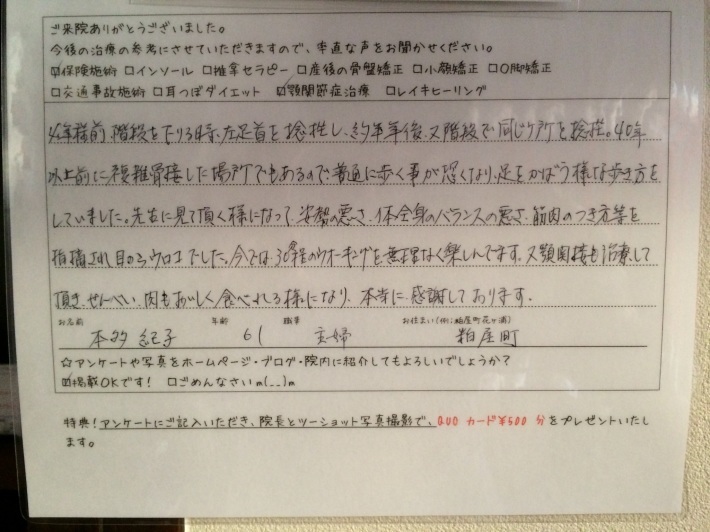 ご来院ありがとうございました。
今後の治療の参考にさせていただきますので、率直な声をお聞かせください。
☑保険施術 □インソール □推拿セラピー □産後の骨盤矯正 □小顔矯正 □O脚矯正
□交通事故施術 □耳つぼダイエット ☑顎関節症治療 □レイキヒーリング
年程前、階段を下りる時、左足首を捻挫し、約半年後、又階段で同じケ所を捻挫。40年
以上前に複雑骨接した場所でもあるので、普通に歩く事が恐くなり、足をかばう様な歩き方を
していました。先生に見て頂く様になって、姿勢の悪さ、体全身のバランスの悪さ、筋肉のつき方等を
指摘され目のうウロコでした。今では、30分程のウオーキングを無理なく楽しんでます。又顎関接も治療して
頂き、せんべい、肉もおいしく食べれる様になり、本当に感謝しております。
お名前 本多 紀子 年齢 61 職業 主婦 お住まい(例:粕屋町花ヶ浦) 粕屋町
☆アンケートや写真をホームページ・ブログ・院内に紹介してもよろしいでしょうか?
☑掲載OKです! □ごめんなさいm(__)m
特典!アンケートにご記入いただき、院長とツーショット写真撮影で、QUOカード¥500分をプレゼントいたし
ます。